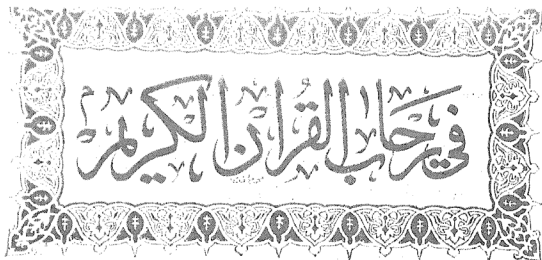 في رحاب القرآن الكريم